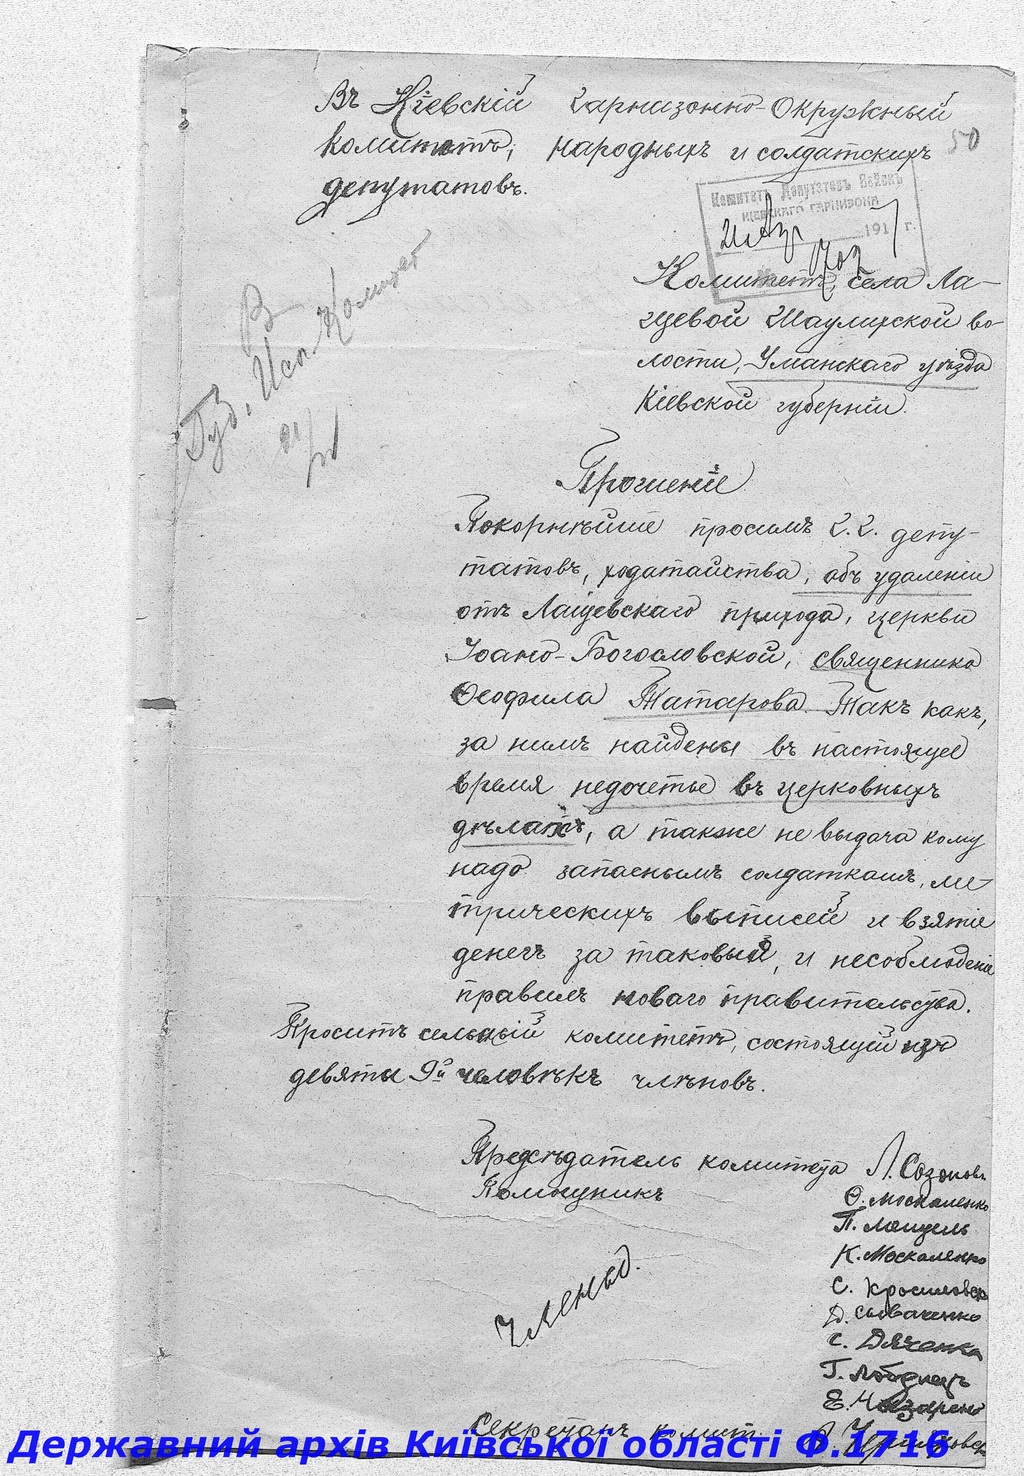 Въ Кіевскій Гарнизонно-Окружный
комитетъ, народныхъ и солдатскихъ
депутатовъ.
50
Комитетъ Депутатовъ Войскъ
КІЕВСКАГО ГАРНИЗОНА
191 7 г.
703
Комитетъ, села Ла-
щевой Шаулихской во-
лости, Уманскаго уѣзда
Кіевской губерніи.
В
Губ. Исп. Комитет
Прошеніе
Покорнѣйше просимъ г.г. депу-
татовъ, ходатайства, объ удаленіи
отъ Лащевскаго прихода, церкви
Іоано-Богословской, священника
Ѳеофила Татарова. Такъ какъ,
за нимъ найдены въ настоящее
время недочеты въ церковныхъ
дѣлахъ, а также не выдача кому
надо запаснымъ солдаткамъ, ме-
трическихъ выписей и взятіе
денегъ за таковыя, и несоблюденіе
правилъ новаго правительства.
Проситъ сельскій комитетъ, состоящій изъ
девяти 9и человѣкъ члѣновъ.
Предсѣдатель комитета Л. Созоновъ
Помощникъ Ѳ. Москаленко
П. Лащель
К. Москаленко
С. Кросиловск
Д. Сываченко
С. Дяченка
Г. Лободюкъ
Е. Назарено
Члены.
Секретарь комит.
Державний архів Київської області Ф.1716